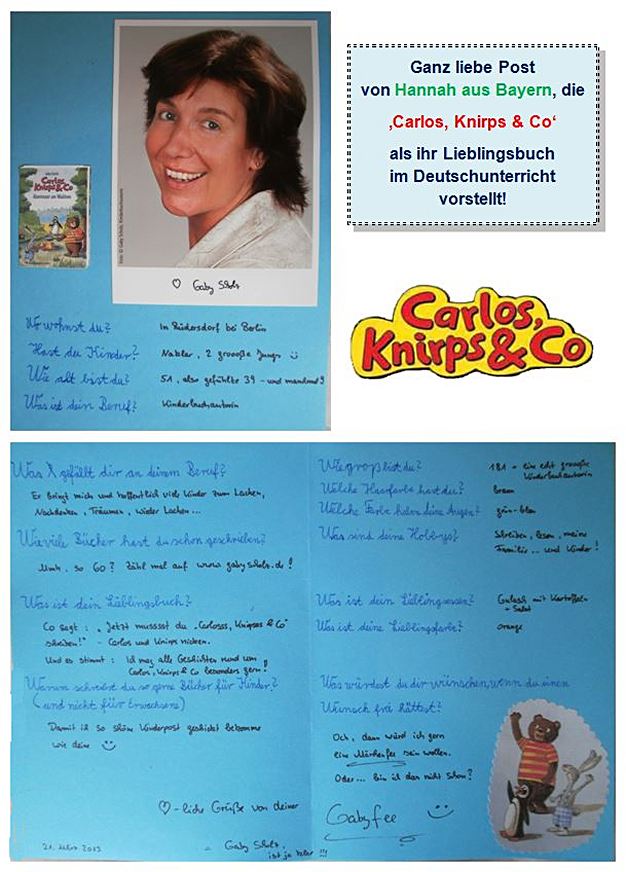 Carlos,
Knirps & Co
Foto: © Gaby Scholz, Kinderbuchautorin
♡ Gaby Scholz
Wo wohnst du? In Rüdersdorf bei Berlin
Hast du Kinder? Na klar, 2 groooße Jungs
Wie alt bist du? 51, also gefühlte 39 - und manchmal 9
Was ist dein Beruf? Kinderbuchautorin
Ganz liebe Post
von Hannah aus Bayern, die
‚Carlos, Knirps & Co‘
als ihr Lieblingsbuch
im Deutschunterricht
vorstellt!
Carlos,
Knirps & Co
Was gefällt dir an deinem Beruf?
Er bringt mich und hoffentlich viele Kinder zum Lachen,
Nachdenken, Träumen, wieder Lachen...
Wieviele Bücher hast du schon geschrieben?
so 60? Zähl mal auf www.gabyscholz.de!
Was ist dein Lieblingsbuch?
Co sagt: „Jetzt musssst du „Carlosss, Knirpsss & Co"
schreiben!" - Carlos und Knirps nicken.
Und es stimmt: Ich mag alle Geschichten rund um
Carlos, Knirps & Co besonders gern!
Warum schreibst du so gerne Bücher für Kinder?
(und nicht für Erwachsene)
Damit ich so schöne Kinderpost geschickt bekomme
wie deine
♡-liche Grüße von deiner
21. März 2013
= Gaby Scholz,
ist ja klar!!!
Wie groß bist du? 181 - eine echt groooße
Kinderbuchautorin
Welche Haarfarbe hast du? braun
Welche Farbe haben deine Augen? grün-blau
Was sind deine Hobbys? Schreiben, lesen, meine
Familie... und Kinder!
Was ist dein Lieblingsessen? Gulasch mit Kartoffeln
+ Salat
Was ist deine Lieblingsfarbe? orange
Was würdest du dir wünschen, wenn du einen
Wunsch frei hättest?
Och, dann würd ich gern
eine Märchenfee sein wollen.
Oder... bin ich das nicht schon?
Gabyfee